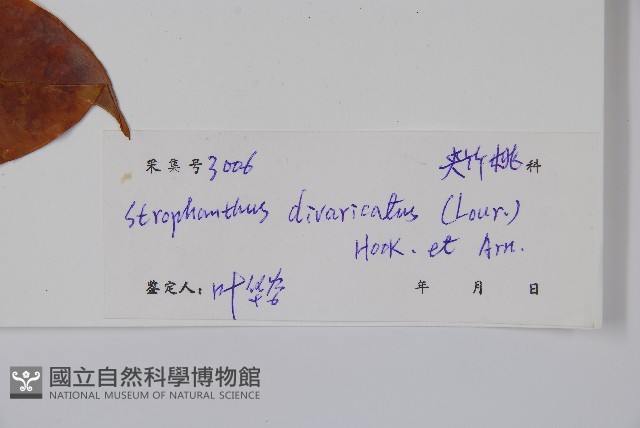 采集号 3006 夹竹桃 科
Strophanthus divaricatus (Lour.)
Hook. et Arn.
鉴定人: 叶华谷 年 月 日
國立自然科學博物館
NATIONAL MUSEUM OF NATURAL SCIENCE